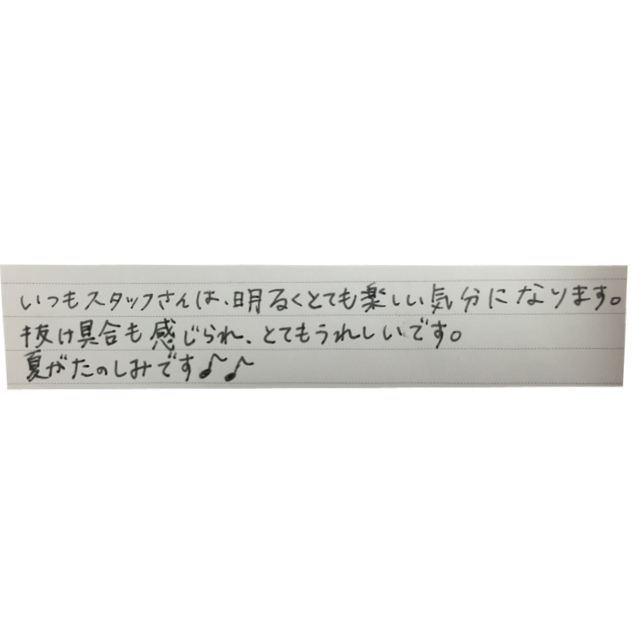 いつもスタッフさんは、明るくとても楽しい気分になります。
抜け具合も感じられ、とてもうれしいです。
夏がたのしみです♪♪